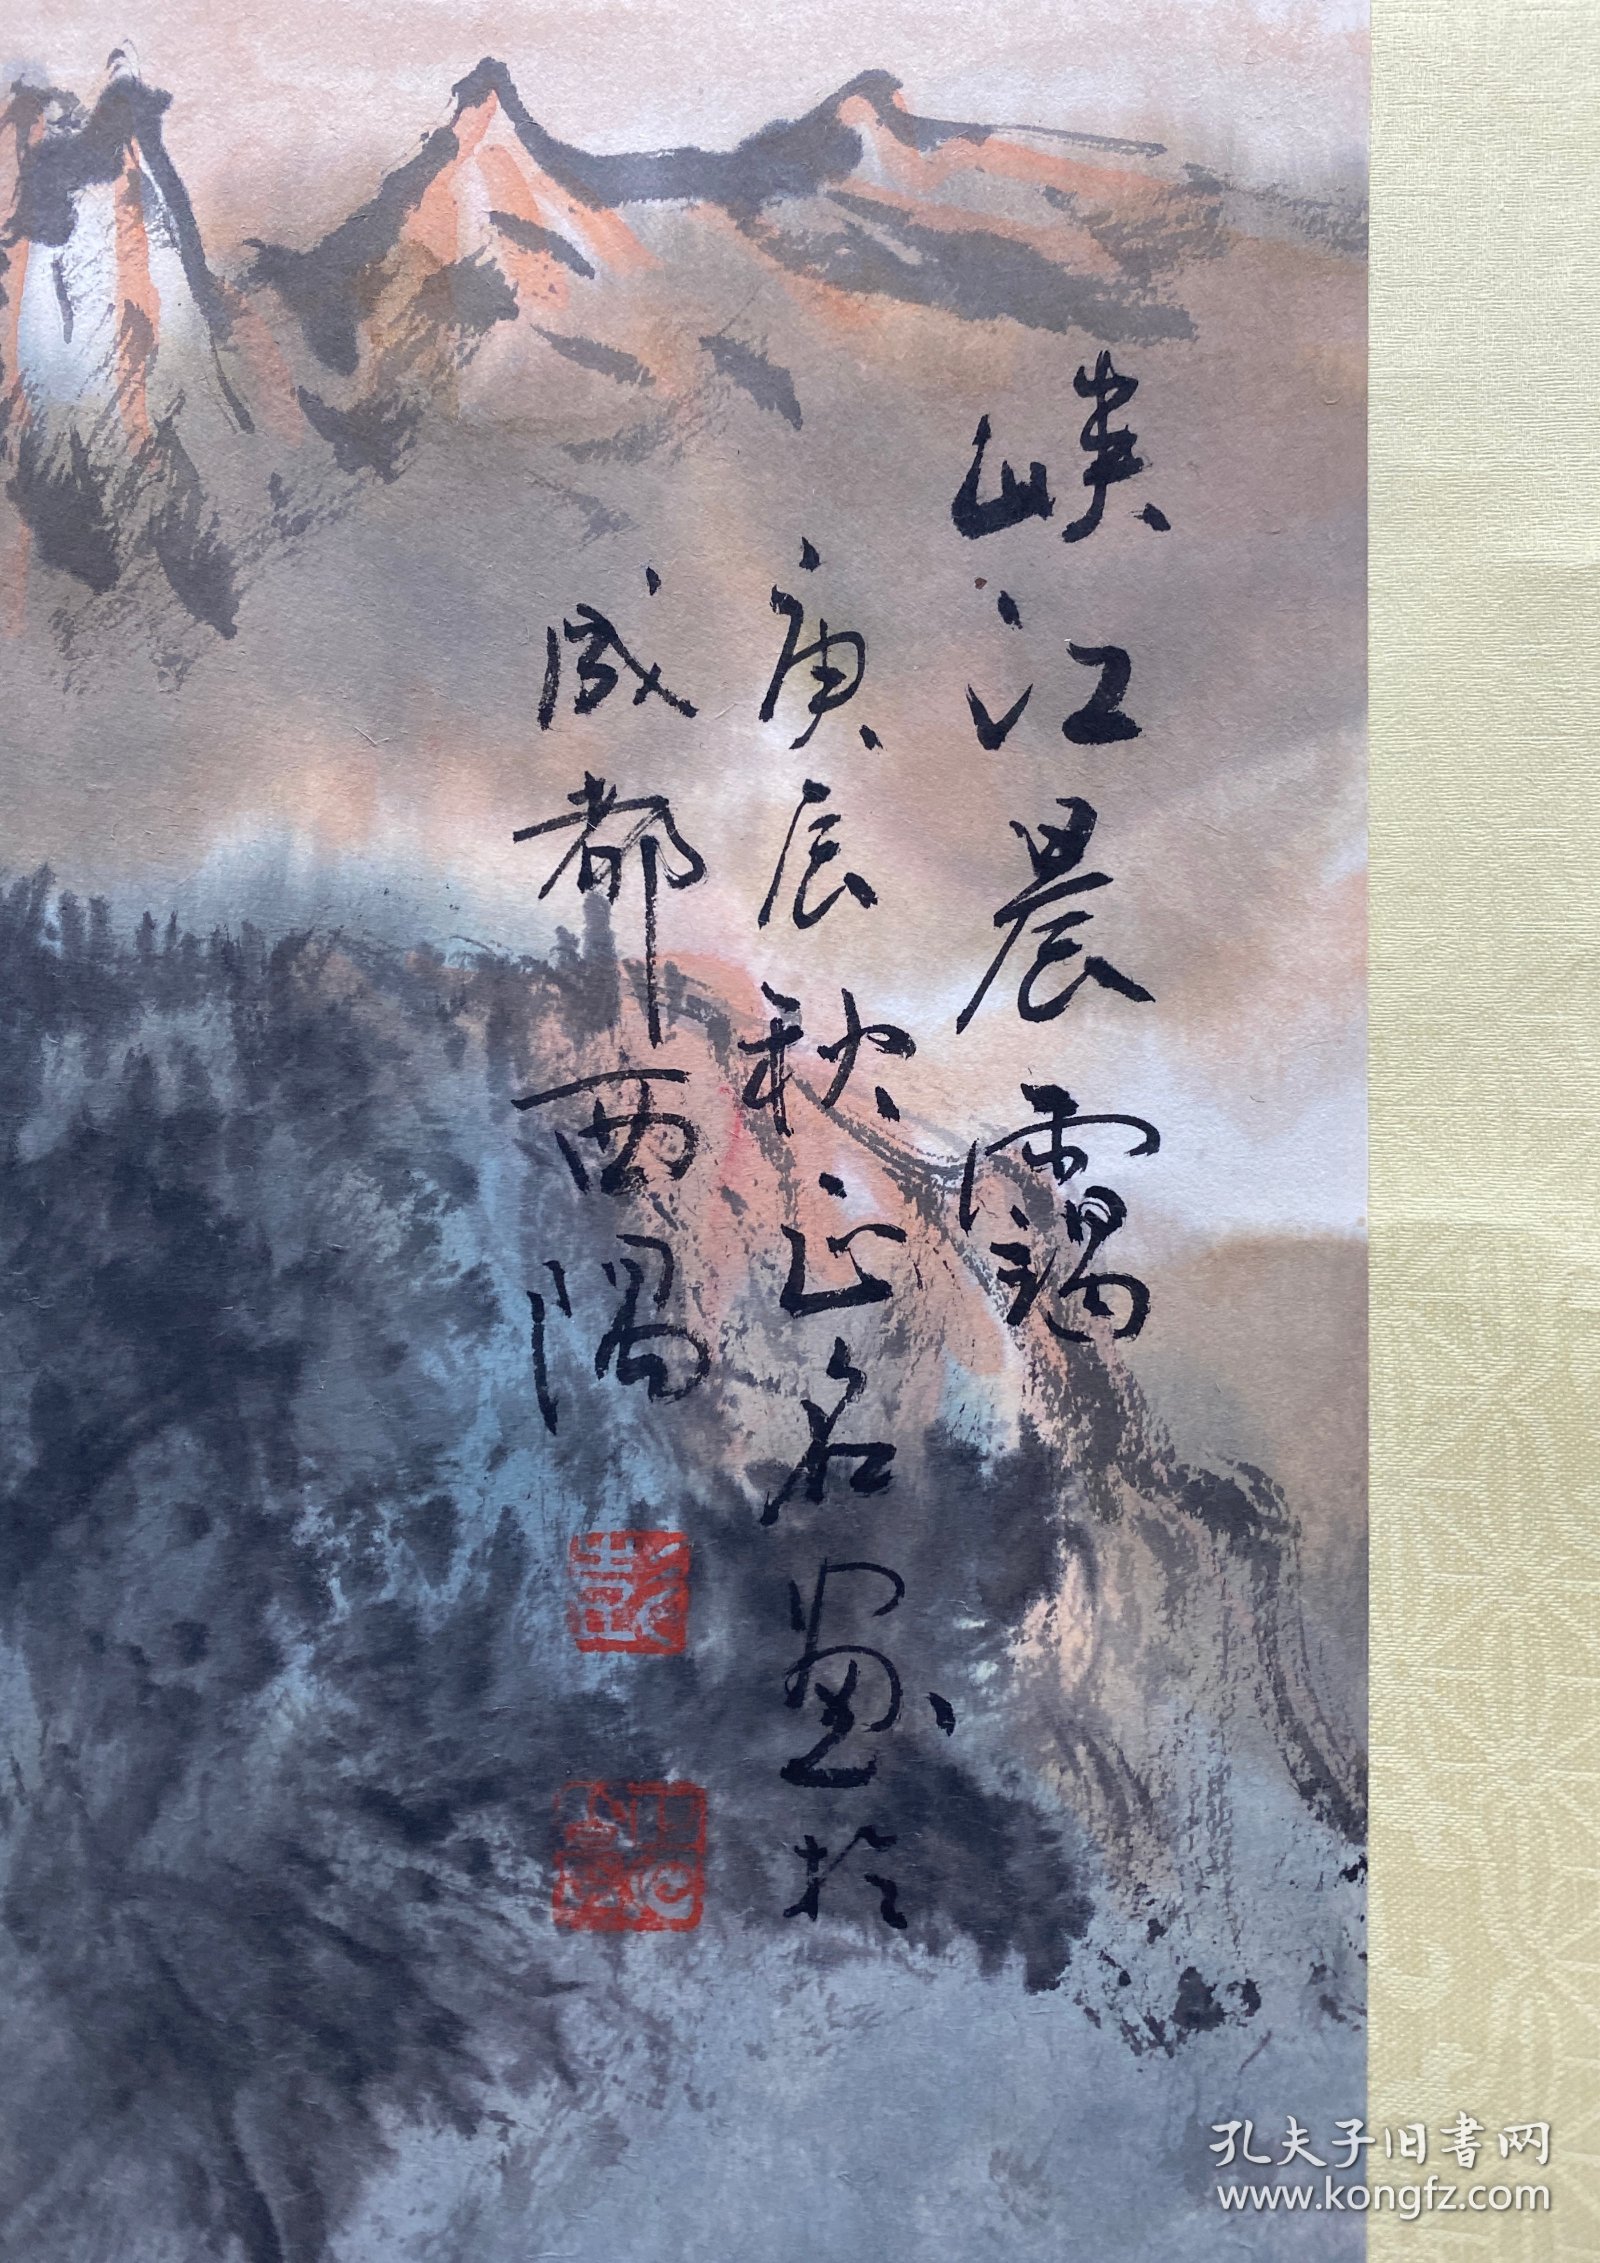 峡江晨霭
庚辰秋正名画於
成都西隅
彭
孔夫子旧书网
www.kongfz.com